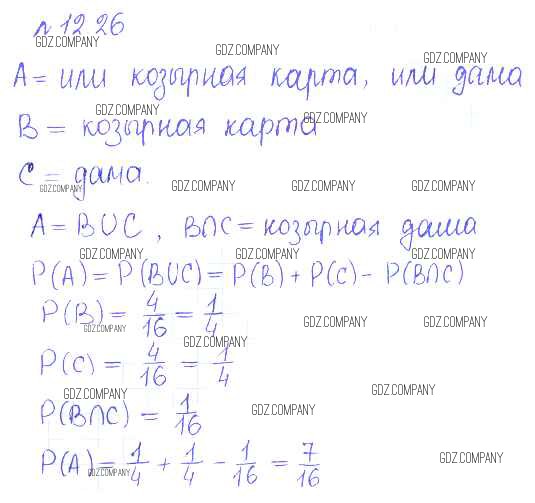 № 12.26
GDZ.COMPANY GDZ.COMPANY GDZ.COMPANY
A = или козырная карта, или дама
GDZ.COMPANY GDZ.COMPANY
B = козырная карта
C = дама.
GDZ.COMPANY GDZ.COMPANY GDZ.COMPANY GDZ.COMPANY
A = B∪C, B∩C = козырная дама
GDZ.COMPANY GDZ.COMPANY GDZ.COMPANY
P(A) = P(B∪C) = P(B) + P(C) - P(B∩C)
P(B) = 4/16 = 1/4
GDZ.COMPANY GDZ.COMPANY GDZ.COMPANY
GDZ.COMPANY
P(C) = 4/16 = 1/4
GDZ.COMPANY GDZ.COMPANY
P(B∩C) = 1/16
GDZ.COMPANY
P(A) = 1/4 + 1/4 - 1/16 = 7/16
GDZ.COMPANY GDZ.COMPANY